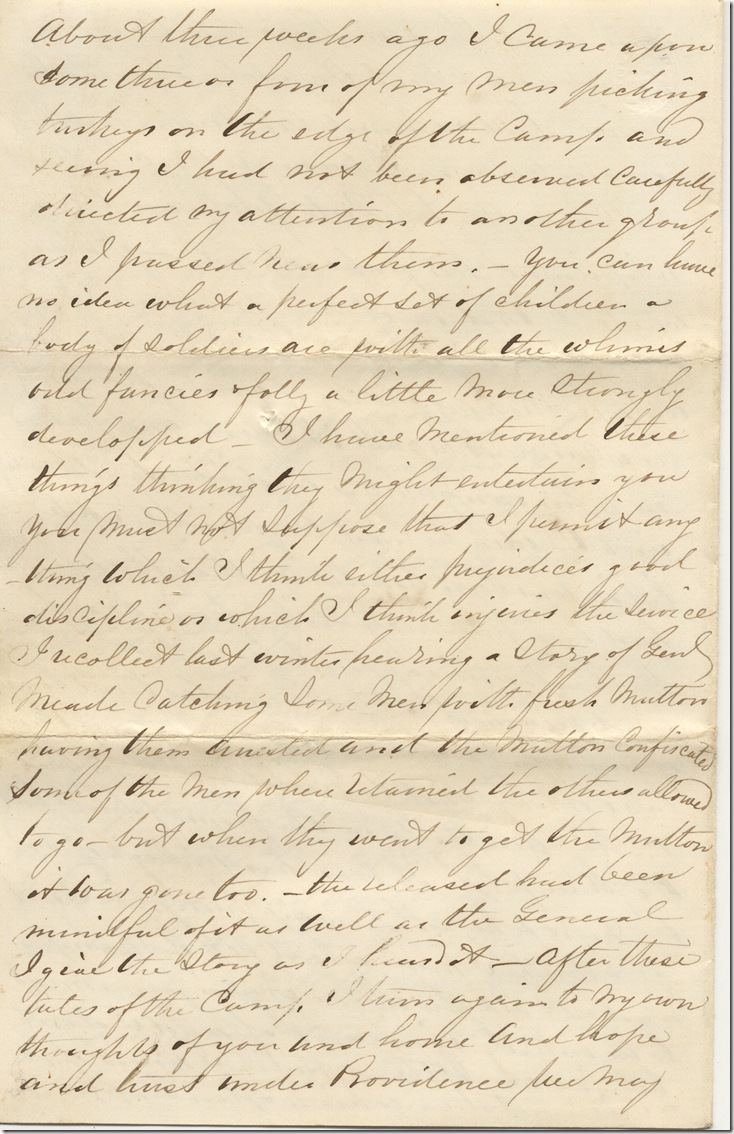 About three weeks ago I came upon
some three or four of my men picking
turkeys on the edge of the Camp and
seeing I had not been observed Carefully
directed my attention to another group
as I passed near them. – You can have
no idea what a perfect set of children a
body of soldiers are with all the whims
odd fancies & folly a little more strongly
developped – I have mentioned these
things thinking they might entertain you
you must not suppose that I permit any
-thing which I think either prejudices good
discipline or which I think injuries the service
I recollect last winter hearing a story of Genl
Meade Catching Some Men with fresh Mutton
having them arrested and the Mutton Confiscated
Some of the Men where retained the others allowed
to go – but when they went to get the Mutton
it was gone too. – the released had been
mindful of it as well as the General
I give the Story as I heard it – After these
tales of the Camp I turn again to my own
thoughts of you and home and hope
and trust under Providence we may